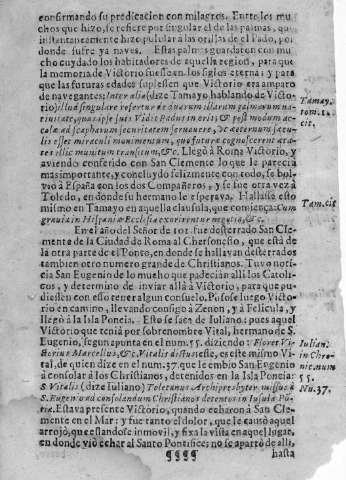 confirmando su predicacion con milagros. Entre los mu
chos que hizo, se refiere por singular el de las palmas, que
instantaneamente hizo pulular a las orillas de el Pado, por
donde sufre ya naves. Estas palmas guardaron con mu
cho cuydado los habitadores de aquella region, para que
la memoria de Victorio fuesse en los siglos eterna: y para
que las futuras edades supiessen que Victorio era amparo
de navegantes: Inter alia (dize Tamayo hablando de Victo
rio) illud singulare refertur de duarum illarum palmarum na-
tivitate, quas ipse
Llegò à Roma Victorio, y
aviendo conferido con San Clemente lo que le parecia
mas importante, y concluydo felizmente con todo, se bol-
viò a España con los dos Compañeros, y se fue otra vez à
Toledo, en donde su hermano le esperava. Hallase esto
mismo en Tamayo en aquella clausula, que comiença: Cum
gravia in Hispaniæ Ecclesia exorirentur negotia, &c.
En el año del Señor de 101. fue desterrado San Cle-
mente de la Ciudad de Roma al Chersonesso, que està de
la otra parte de el Ponto, en donde se hallavan desterrados
tambien otro numero grande de Christianos. Tuvo noti-
cia San Eugenio de lo mucho que padecian alli los Catoli-
cos, y determino de inviar allà à Victorio, para que pu-
diessen con esso tener algun consuelo. Pusose luego Victo-
rio en camino, llevando consigo à Zenon, y à Felicula, y
llegò à la Isla Poncia. Esto se saca de Iuliano: pues aquel
Victorio que tenia por sobrenombre Vital, hermano de S.
Eugenio, segun apunta en el num. 55. diziendo: Floret Vi-
ctorius Marcellus, &c. Vitalis dictus: esse, es este mismo Vi-
tal, de quien dize en el num. 37. que le embio San Eugenio
à consolar à los Christianos, detenidos en la Isla Poncia:
S. Vitalis (dize Iuliano) Toletanus Archipresbyter, missus à
S. Eugenio ad consolandum Christianos detentos in Insula Pō-
tia. Estava presente Victorio, quando echaron à San Cle-
mente en el Mar: y fue tanto el dolor, que le causò aquel
arrojo, que estandose inmovil, y fixa la vista en aquel lugar,
en donde viò echar al Santo Pontifice; no se apartò de alli,
hasta
Tamay.
tom. 1.
cit.
Tam. cit
Iulian.
in Chro-
nic. num
55.
Nu. 37.